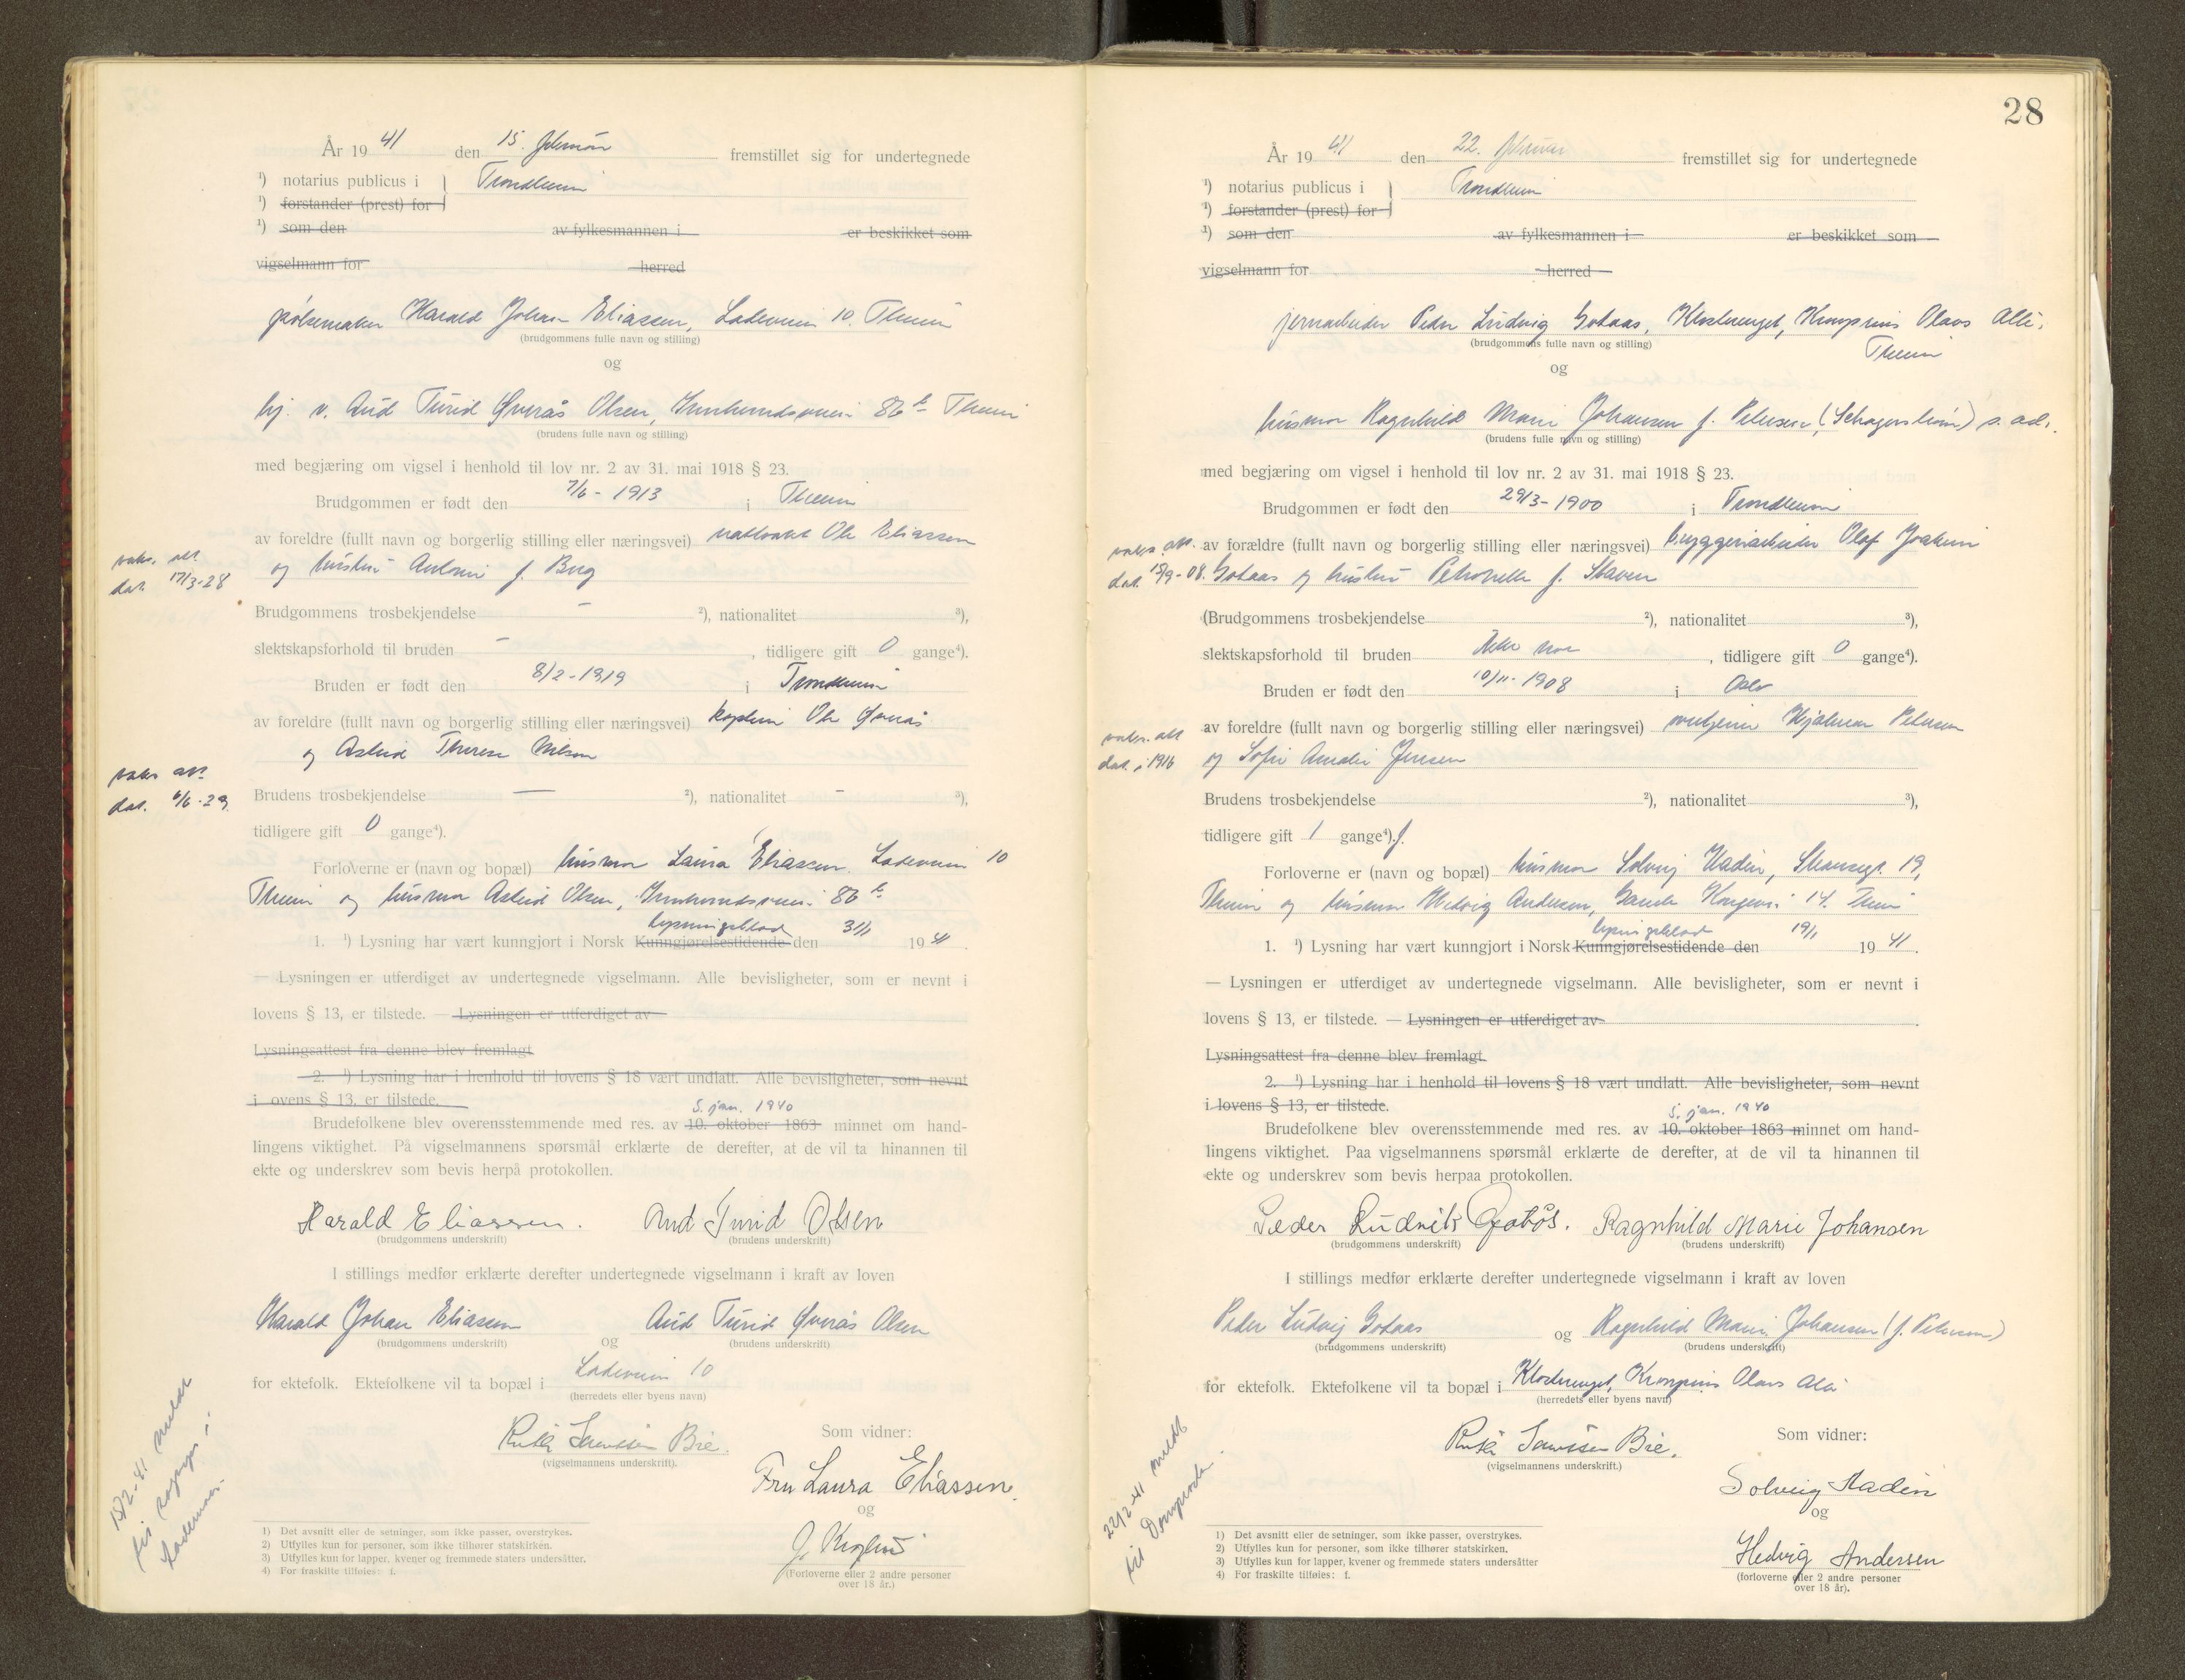 År 19 41 den 15. februar fremstillet sig for undertegnede
¹) notarius publicus i Trondheim
¹) forstander (prest) for
¹) som den av fylkesmannen i er beskikket som
vigselmann for herred
pølsemaker Harald Johan Eliassen, Ladeveien 10. Theim
(brudgommens fulle navn og stilling)
og
hj. v. Aud Turid Øverås Olsen, Innherredsveien 86 b Theim
(brudens fulle navn og stilling)
med begjæring om vigsel i henhold til lov nr. 2 av 31. mai 1918 § 23.
Brudgommen er født den 7/6 - 1913 i Theim
av foreldre (fullt navn og borgerlig stilling eller næringsvei) nattvakt Ole Eliassen
vaks. att. og hustru Antonie f. Berg
dat. 17/3-28
Brudgommens trosbekjendelse - ²), nationalitet ³),
slektskapsforhold til bruden - , tidligere gift 0 gange⁴).
Bruden er født den 8/2 - 1919 i Trondheim
av foreldre (fullt navn og borgerlig stilling eller næringsvei) kaptein Ole Øverås
og Astrid Therese Nilsen
vaks att.
dat. 6/6-29. Brudens trosbekjendelse — ²), nationalitet - ³),
tidligere gift 0 gange⁴).
Forloverne er (navn og bopæl) husmor Laura Eliassen. Ladeveien 10
Theim og husmor Astrid Olsen, Innherredsveien 86 b
lysningsblad
1. ¹) Lysning har vært kunngjort i Norsk Kunngjørelsestidende den 31/1 19 41
— Lysningen er utferdiget av undertegnede vigselmann. Alle bevisligheter, som er nevnt i
lovens § 13, er tilstede. — Lysningen er utferdiget av
Lysningsattest fra denne blev fremlagt
2. ¹) Lysning har i henhold til lovens § 18 vært undlatt. Alle bevisligheter, som nevnt
i ovens § 13, er tilstede.
5. jan. 1940
Brudefolkene blev overensstemmende med res. av 10. oktober 1863 minnet om hand-
lingens viktighet. På vigselmannens spørsmål erklærte de derefter, at de vil ta hinannen til
ekte og underskrev som bevis herpå protokollen.
Harald Eliassen. Aud Turid Olsen
(brudgommens underskrift) (brudens underskrift)
I stillings medfør erklærte derefter undertegnede vigselmann i kraft av loven
Harald Johan Eliassen og Aud Turid Øverås Olsen
(brudgommens underskrift) (brudens underskrift)
for ektefolk. Ektefolkene vil ta bopæl i Ladeveien 10
(herredets eller byens navn)
Ruth Bie.
(vigselmannens underskrift).
Som vidner:
Fru Laura Eliassen.
og
(Forloverne eller 2 andre personer
over 18 år.)
15/2-41 meldt
til sognepr. i
Lademoen.
1) Det avsnitt eller de setninger, som ikke passer, overstrykes.
2) Utfylles kun for personer, som ikke tilhører statskirken.
3) Utfylles kun for lapper, kvener og fremmede staters undersåtter.
4) For fraskilte tilføies: f.
28
År 19 41 den 22. februar fremstillet sig for undertegnede
¹) notarius publicus i Trondheim
¹) forstander (prest) for
¹) som den av fylkesmannen i er beskikket som
vigselmann for herred
jernarbeider Peder Ludvig Gotaas, Klosterenget, Kronprins Olavs Alle,
Theim
(brudgommens fulle navn og stilling)
og
husmor Ragnhild Marie Johansen f. Petersen s. ad.
(brudens fulle navn og stilling)
med begjæring om vigsel i henhold til lov nr. 2 av 31. mai 1918 § 23.
Brudgommen er født den 29/3 - 1900 i Trondheim
vaks. att. av forældre (fullt navn og borgerlig stilling eller næringsvei) bryggeriarbeider Olaf Joakim
dat. Gotaas og hustru Petronelle f. Staven
(Brudgommens trosbekjendelse ²), nationalitet ³),
slektskapsforhold til bruden , tidligere gift 0 gange⁴).
Bruden er født den 10/11 - 1908 i Oslo
av foreldre (fullt navn og borgerlig stilling eller næringsvei) Hjalmar Petersen
vaks. att.
dat. i 1916 og Sofie Amalie Jensen
Brudens trosbekjendelse ²), nationalitet ³),
tidligere gift 1 gange⁴).f.
Forloverne er (navn og bopæl) husmor Solveig Hadin, 19,
Theim og husmor Hedvig Andersen, Gamle Kongevei 14. Theim
lysningsblad
1. ¹) Lysning har vært kunngjort i Norsk Kunngjørelsestidende den 19/1 19 41.
— Lysningen er utferdiget av undertegnede vigselmann. Alle bevisligheter, som er nevnt i
lovens § 13, er tilstede. — Lysningen er utferdiget av
Lysningsattest fra denne blev fremlagt
2. ¹) Lysning har i henhold til lovens § 18 vært undlatt. Alle bevisligheter, som nevnt
i lovens § 13, er tilstede.
5. jan. 1940
Brudefolkene blev overensstemmende med res. av 10. oktober 1863 minnet om hand-
lingens viktighet. Paa vigselmannens spørsmål erklærte de derefter, at de vil ta hinannen til
ekte og underskrev som bevis herpaa protokollen.
Peder Ludvik Gotås. Ragnhild Marie Johansen
(brudgommens underskrift) (brudens underskrift)
I stillings medfør erklærte derefter undertegnede vigselmann i kraft av loven
Peder Ludvig Gotaas og Ragnhild Marie Johansen (f. Petersen)
(brudgommens underskrift) (brudens underskrift)
for ektefolk. Ektefolkene vil ta bopæl i Klosterenget, Kronprins Olavs Alle
(herredets eller byens navn)
Ruth Bie.
(vigselmannens underskrift.)
Som vidner:
Solveig Hadin
og
Hedvig Andersen
(forloverne eller 2 andre personer
over 18 år).
22/2-41 meldt
til Domprosten.
1) Det avsnitt eller de setninger, som ikke passer, overstrykes.
2) Utfylles kun for personer, som ikke tilhører statskirken.
3) Utfylles kun for lapper, kvener og fremmede staters undersåtter
4) For fraskilte tilføies: f.